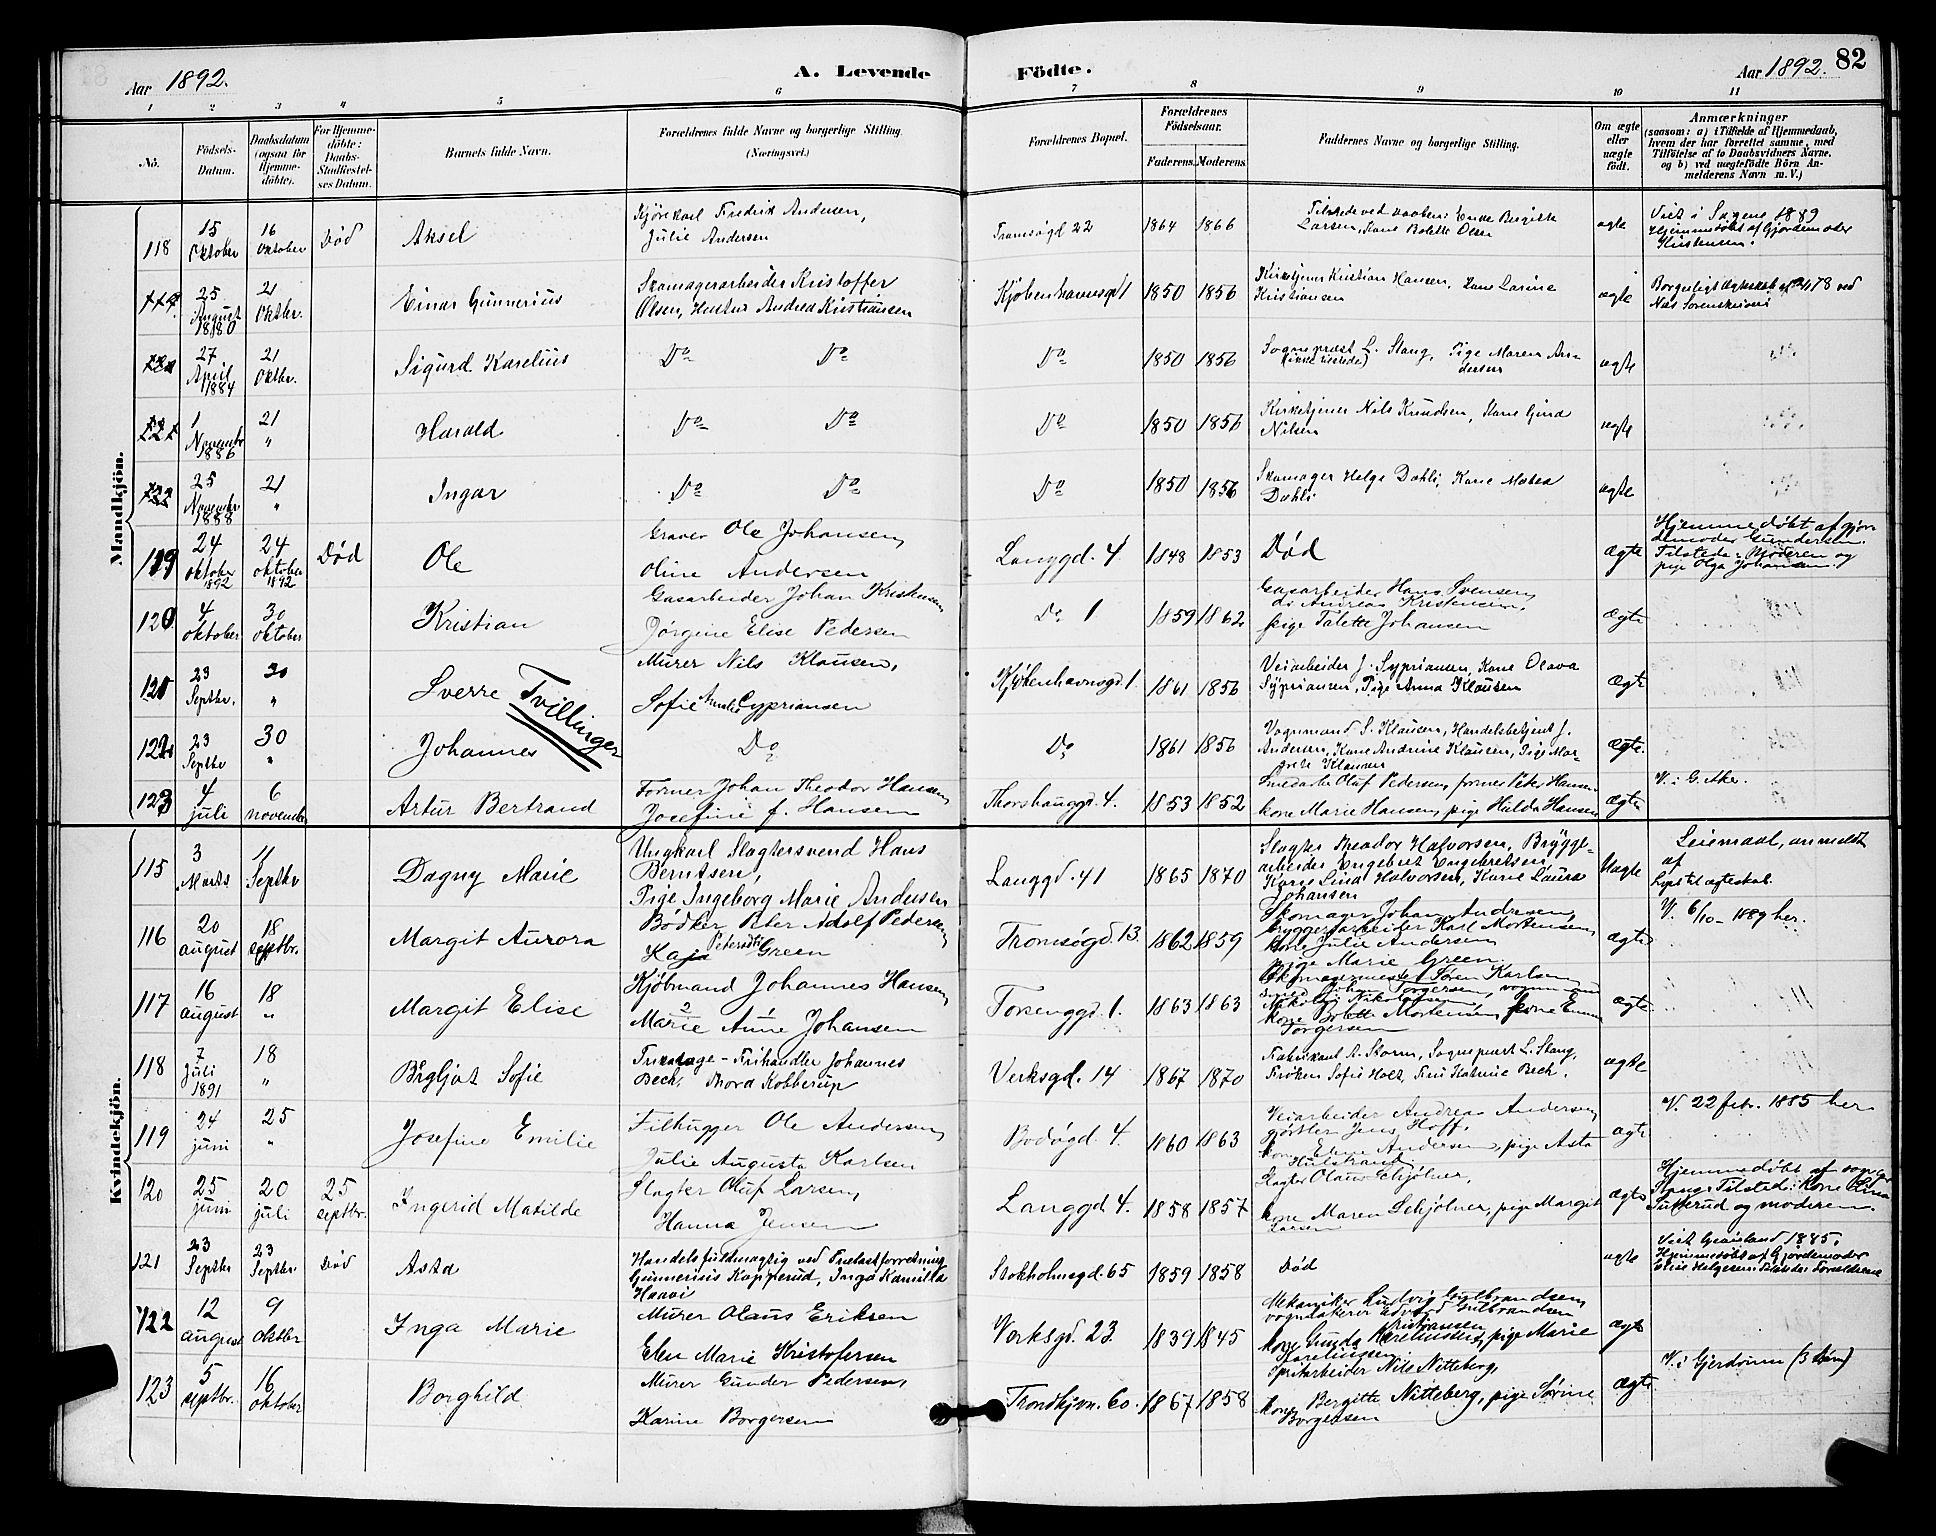 Aar 1892.
A. Levende
Födte.
Aar 1892.
82
1 2 3 4 5 6 7 8 9 10 11
No.
Födsels-Datum.
Daabsdatum (ogsaa for Hjemmedöbte).
For Hjemmedöbte: Daabs-Stadfæstelses Datum.
Barnets fulde Navn.
Forældrenes fulde Navne og borgerlige Stilling.
(Næringsvei.)
Forældrenes Bopæl.
Forældrenes Födselsaar.
Faderens. Moderens.
Faddernes Navne og borgerlige Stilling.
Om ægte eller uægte födt.
Anmærkninger
(saasom: a) i Tilfælde af Hjemmedaab, hvem der har forrettet samme, med Tilföielse af to Daabsvidners Navne, og b) ved uægtefödte Börn Anmelderens Navn m. V.)
Mandkjön.
118 15 Oktober 16 Oktober Död Aksel
Kjörekarl Fredrik Andersen,
Julie Andersen
Tromsögd 22 1864 1866
Tilstede ved daaben: Enke Birgitte
Larsen, Kone Bolette Olsen
ægte
Viet i Sagene 1889
Hjemmedöbt af Gjordemoder
Kristensen.
25 August 1880 21 Oktbr. Einar Gunnerius
Skomagerarbeider Kristoffer
Olsen, Hustru Andrea Kristiansen
Kjöbenhavnsgd 1 1850 1856
Kirketjener Kristian Hansen, Kone Larine
Kristiansen
ægte
Borgerligt Ægteskab 78 ved
Næs Sorenskriveri
27 April 1884 21 Oktbr. Sigurd Karelius
Do Do
Do 1850 1856
Sognepræst L. Stang, Pige Maren Andersen
(ikke tilstede)
ægte
1 November 1886 21 " Harald
Do Do
Do 1850 1856
Kirketjener Nils Knudsen, Kone Gina
Nilsen
ægte
122 25 November 1888 21 " Ingar
Do Do
Do 1850 1856
Skomager Helge Dahli, Kone Matea
Dahli
ægte
119 24 oktober 1892 24 oktober 1892 Död Ole
Graver Ole Johansen,
Oline Andersen
Langgd. 4 1848 1853 Död ægte
Hjemmedöbt af gjordemoder
Gundersen.
Tilstede: Moderen og
pige Olga Johansen.
120 4 oktober 30 oktober Kristian
Gasarbeider Johan Kristensen,
Jörgine Elise Pedersen
Do 1 1859 1862
Gasarbeider Hans Svensen,
do Andreas Kristensen,
pige Talette Johansen
ægte
121 23 Septbr. 30 " Sverre
Tvillinger
Murer Nils Klausen,
Sofie Amalie Cyprianen
Kjøbenhavnsgd 1. 1861 1856
Veiarbeider J. Syprianen, Kone Olava
Syprianen, Pige Anna Klausen
ægte
122 23 Septbr 30 " Johannes
Do
Do 1861 1856
Vognmand S. Klausen, Handelsbetjent J.
Andersen, Kone Andrine Klausen, Pige Margrete
Klausen
ægte
123 4 juli 6 november Artur Bertrand
Former Johan Theodor Hansen,
Josefine f. Hansen
Thorshauggd. 4. 1853 1852
Smedarb. Oluf Pedersen, former Peter Hansen
kone Marie Hansen, pige Hulda Hansen
ægte
V. i G. Aker.
Kvindekjön.
115 3 Marts 11 Septbr Dagny Marie
Ungkarl Slagtersvend Hans
Berntsen,
Pige Ingeborg Marie Andersen
Langgd. 41 1865 1870
Slagter Theodor Halvorsen, Brygge-
arbeider Engebret Engebretsen,
Kone Lina Halvorsen, Kone Laura
Johansen
Uægte
Leiermaal, anmeldt
af
Lyst til ægteskab.
116 20 august 18 septbr. Margit Aurora
Bödker Peter Adolf Pedersen,
Kaja Green
Tromsøgd. 13. 1862 1859
Skomager Johan Andresen,
bryggeriarbeider Karl Mortensen,
kone Julie Andersen
pige Marie Green
ægte
V. 6/10 - 1889 her.
117 16 august 18 " Margit Elise
Kjøbmand Johannes Hansen,
Marie Anne Johansen
2 1
Torsenggd. 1. 1863 1863
Skomagermester Søren Karlsen
Johan Torgersen, vognmand
Nikolai Nikolaisen,
kone Bolette Mortensen, kone Emma
Torgersen
ægte
118 7 Juli 1891 18 " Bergljot Sofie
Trikotage-Frihandler Johannes
Bech, Thora Kobberup
Verksgd. 14 1867 1870
Fabrikant A. Storm, Sognepræst L. Stang,
Fröken Sofie Holt, Fru Katrine Bech.
ægte
119 24 juni 25 " Josefine Emilie
Filhugger Ole Andersen,
Julie Augusta Karlsen
Bodögd. 4. 1860 1863
Veiarbeider Andreas Andersen,
gjørtler Jens Hoff,
kone Andersen, pige Asta
Hulstrand
ægte
V. 22 febr. 1885 her
120 25 juni 20 juli 25 septbr. Ingerid Matilde
Slagter Oluf Larsen,
Hanna Jensen
Langgd 4. 1858 1857
Slagter Olaus Schjölner,
kone Maren Schjölner, pige Margit
Larsen
ægte
Hjemmedöbt af sogneprest
Stang. Tilstede: Kone
Sutterud og moderen.
121 23 Septbr 23 Septbr Död Asta
Handelsfuldmægtig ved Trælastforretning
Gunnerius Kopperud, Inga Kamilla
Haavi
Stokholmsgd. 65 1859 1858 Död ægte
Viet 1885.
Hjemmedöbt af Gjordemoder
Elise Helgesen. Tilstede: Forældrene
122 12 august 9 oktbr Inga Marie
Murer Olaus Eriksen
Elen Marie Kristofersen
Verksgd. 23. 1839 1845
Mekaniker Ludvig Gulbrandsen,
vognlakerer Edvard Gulbrandsen
kone Gunda Kristiansen, pige Marie
Karelinssen
ægte
123 5 septbr. 16 oktober Borghild
Murer Gunder Pedersen,
Karine Borgersen
Trondhjm. 60. 1867 1858
Spritarbeider Nils Nitteberg,
kone Bergitte Nitteberg, pige Sörine
Borgersen
ægte
V. i Gjerdrum